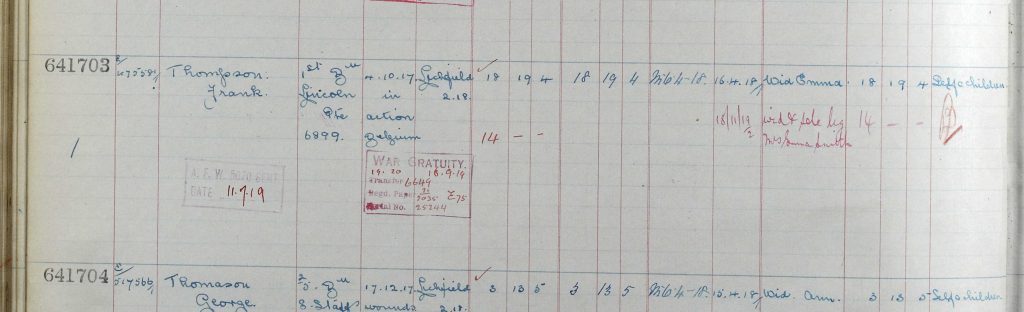 641703 Thompson. 1st Bn 4.10.17 Lichfield 18 19 4 18 19 4 16.4.18 Wid Emma. 18 19 4 Self & children
Frank. Lincoln in 2.18.
Pte action 18/11/19 wid & sole leg 14 - -
6899. Belgium 14 - - Mrs Emma Smith
1
WAR GRATUITY.
19.20 18.9.19
Transfer 6649
Regd. Paper 7035 E75
Serial No. 25244
A. F. W. 5070 SENT
DATE 11.7.19
641704 Thomason 2/5. Bn 17.12.17 Lichfield 3 13 5 3 13 5 15.4.18 Wid. Ann. 3 13 5 Self & children
George. S. Staff wounds 2.18.